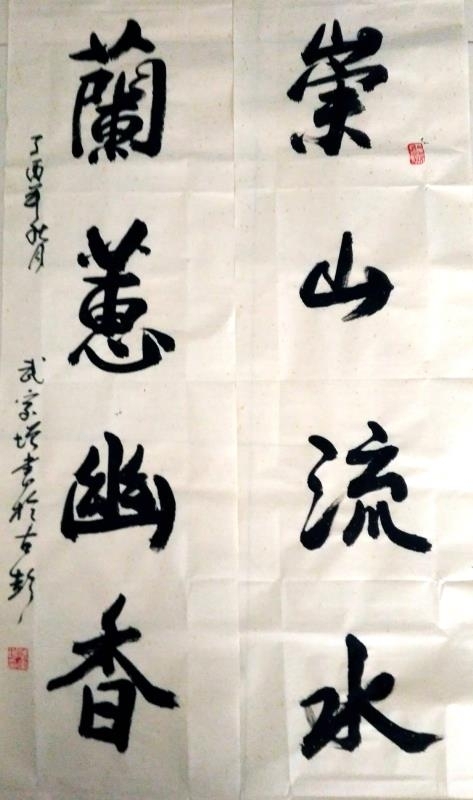 崇山流水
蘭蕙幽香
丁酉年秋月
武宗增書於古彭